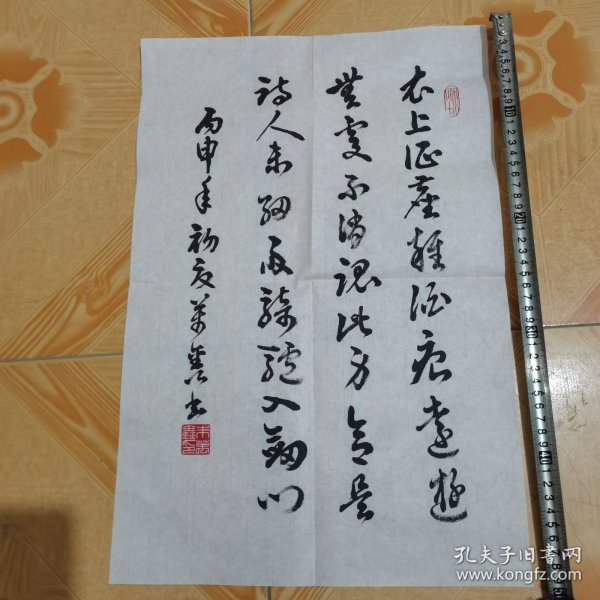 衣上征尘雜酒痕遠遊
無處不消魂此身合是
詩人未細雨騎驢入劍門
丙申年初夏萬善书
孔夫子旧书网
www.kongfz.com